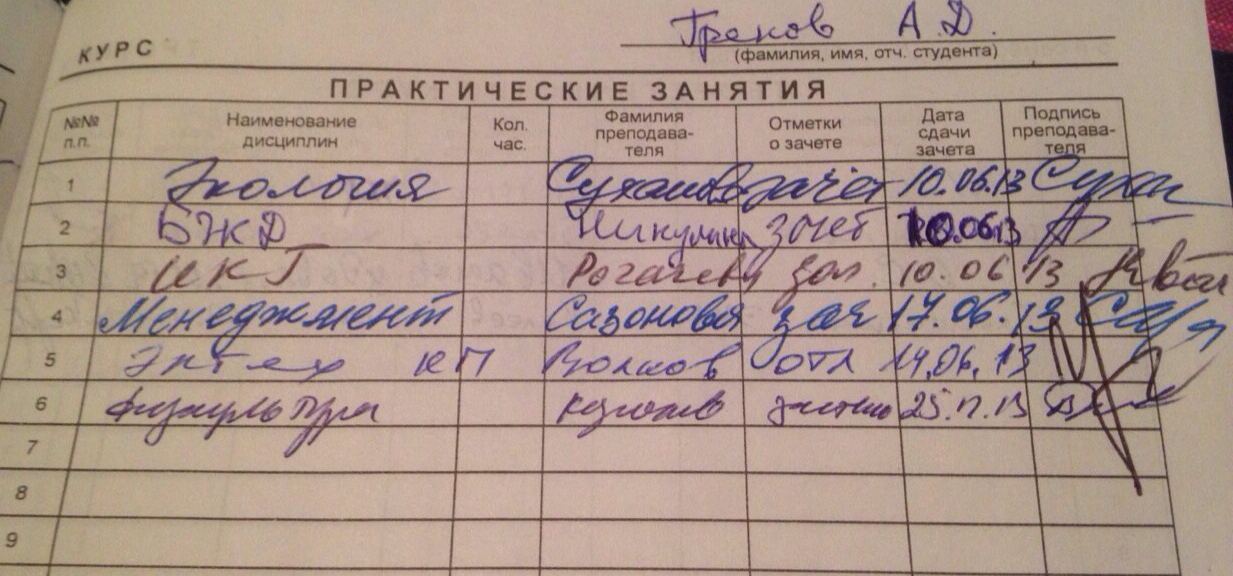 КУРС
Греков А.Д.
(фамилия, имя, отч. студента)
ПРАКТИЧЕСКИЕ ЗАНЯТИЯ
№№ п.п. Наименование дисциплин Кол. час. Фамилия преподава-теля Отметки о зачете Дата сдачи зачета Подпись преподава-теля
1 Экология Суханов зачёт 10.06.13 Сухан
2 БЖД Никулина зачет 10.06.13
3 ИКГ Рогачева 10.06 13
4 Менеджмент Сазонова зач 17.06.13
5 КП Волков отл 14.06.13
6 Физкультура 13
7
8
9